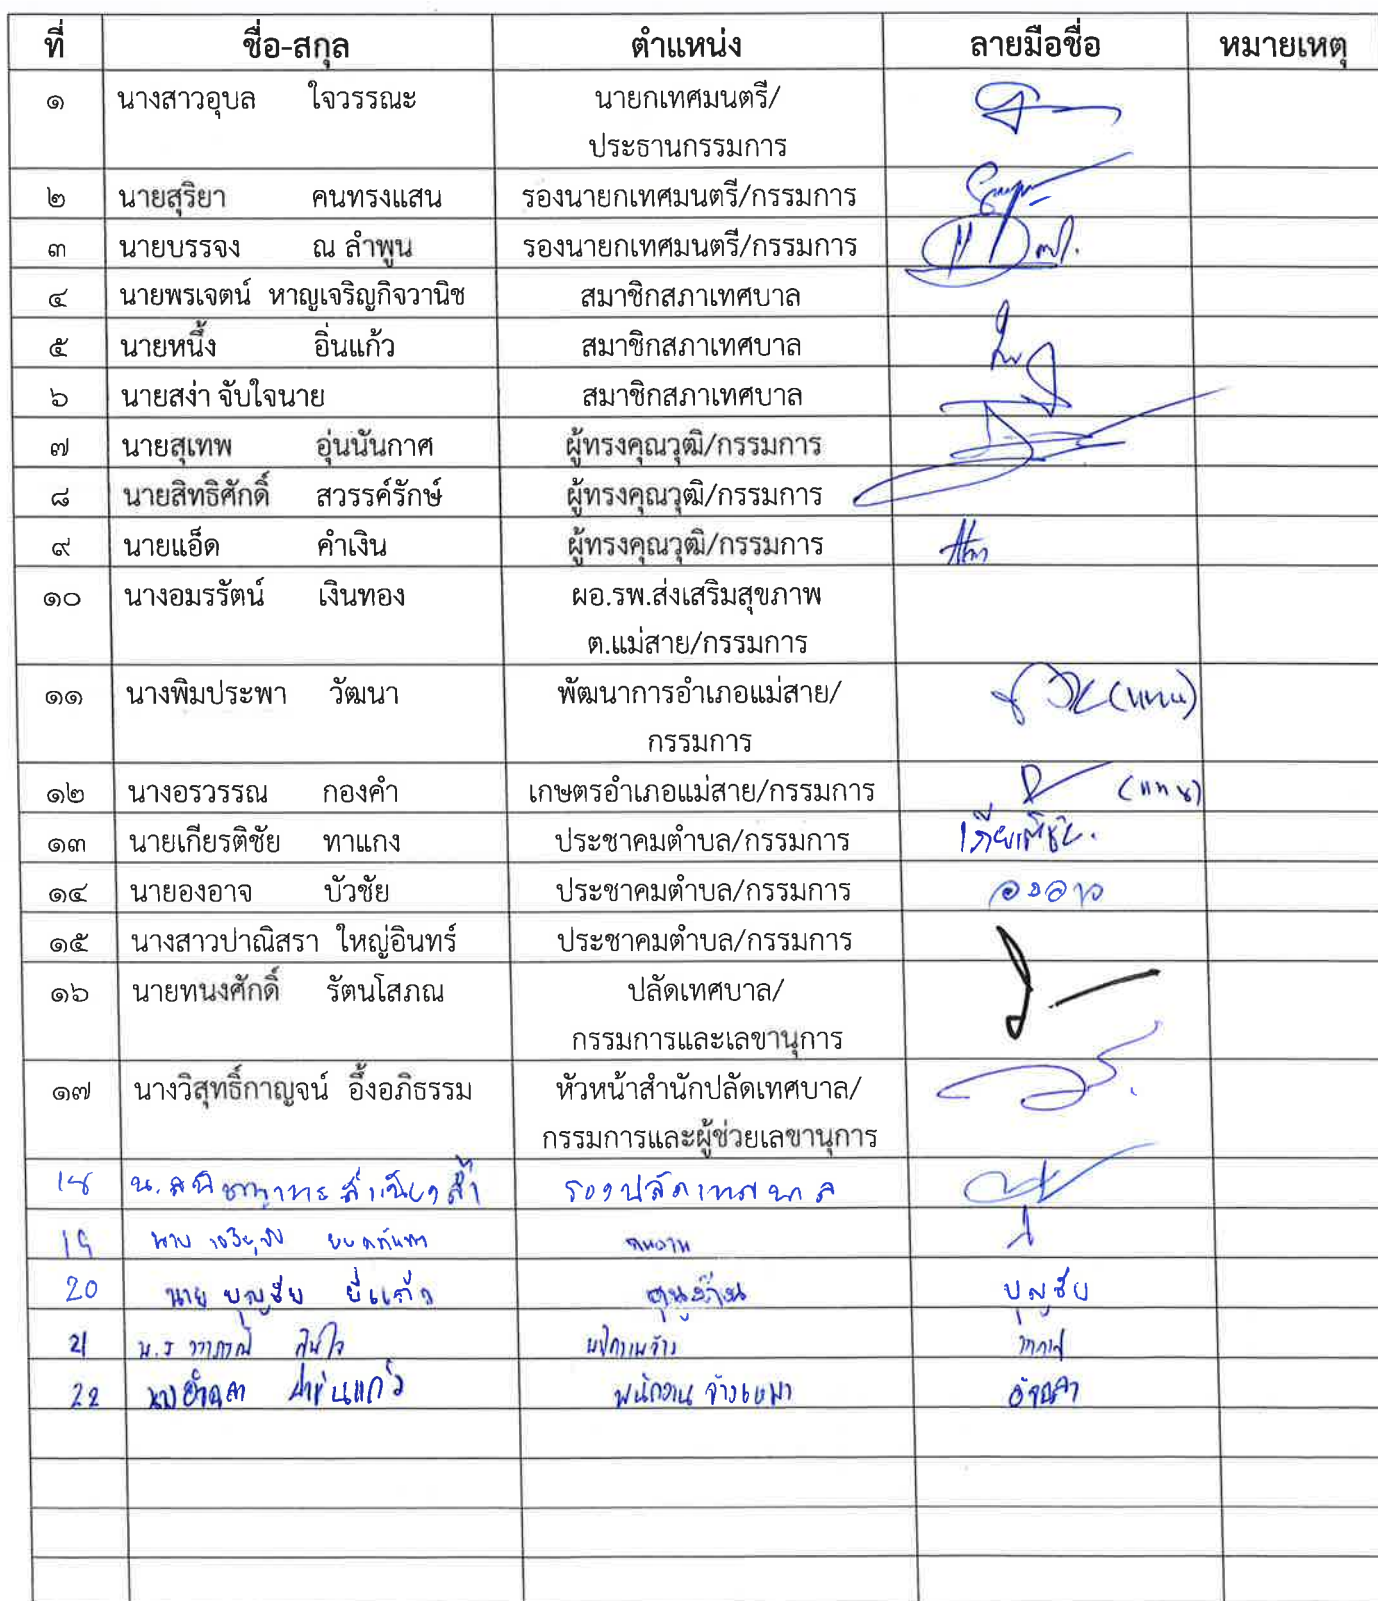 ที่ ชื่อ-สกุล ตำแหน่ง ลายมือชื่อ หมายเหตุ
๑ นางสาวอุบล ใจวรรณะ นายกเทศมนตรี/
ประธานกรรมการ
๒ นายสุริยา คนทรงแสน รองนายกเทศมนตรี/กรรมการ
๓ นายบรรจง ณ ลำพูน รองนายกเทศมนตรี/กรรมการ
๔ นายพรเจตน์ หาญเจริญกิจวานิช สมาชิกสภาเทศบาล
๕ นายหนึ้ง อิ่นแก้ว สมาชิกสภาเทศบาล
๖ นายสง่า จับใจนาย สมาชิกสภาเทศบาล
๗ นายสุเทพ อุ่นนันกาศ ผู้ทรงคุณวุฒิ/กรรมการ
๘ นายสิทธิศักดิ์ สวรรค์รักษ์ ผู้ทรงคุณวุฒิ/กรรมการ
๙ นายแอ็ด คำเงิน ผู้ทรงคุณวุฒิ/กรรมการ
๑๐ นางอมรรัตน์ เงินทอง ผอ.รพ.ส่งเสริมสุขภาพ
ต.แม่สาย/กรรมการ
๑๑ นางพิมประพา วัฒนา พัฒนาการอำเภอแม่สาย/ (แทน)
กรรมการ
๑๒ นางอรวรรณ กองคำ เกษตรอำเภอแม่สาย/กรรมการ (แทน)
๑๓ นายเกียรติชัย ทาแกง ประชาคมตำบล/กรรมการ เกียรติชัย.
๑๔ นายองอาจ บัวชัย ประชาคมตำบล/กรรมการ องอาจ
๑๕ นางสาวปาณิสรา ใหญ่อินทร์ ประชาคมตำบล/กรรมการ
๑๖ นายทนงศักดิ์ รัตนโสภณ ปลัดเทศบาล/
กรรมการและเลขานุการ
๑๗ นางวิสุทธิ์กาญจน์ อึ้งอภิธรรม หัวหน้าสำนักปลัดเทศบาล/
กรรมการและผู้ช่วยเลขานุการ
18 รองปลัดเทศบาล
19 นาย คนงาน
20 นาย บุญชัย ยี่แก้ว บุญชัย
21 น.ส วราภรณ์
22 พนักงาน จ้างเหมา